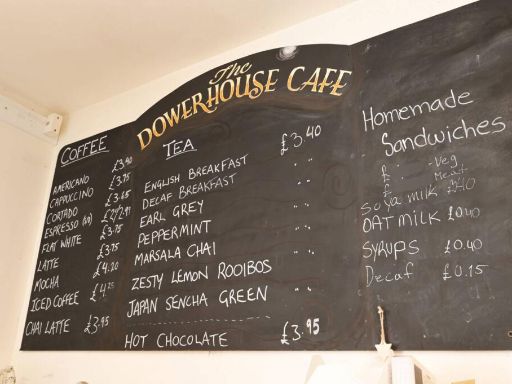 The
DOWERHOUSE CAFE
COFFEE
AMERICANO £3.40
CAPPUCCINO £3.75
CORTADO £3.65
ESPRESSO £2/2.91
FLAT WHITE £3.75
LATTE £3.75
MOCHA £4.20
ICED COFFEE £4.25
CHAI LATTE £3.95
TEA £3.40
ENGLISH BREAKFAST " "
DECAF BREAKFAST " "
EARL GREY " "
PEPPERMINT " "
MARSALA CHAI " "
ZESTY LEMON ROOIBOS " "
JAPAN SENCHA GREEN " "
HOT CHOCOLATE £3.95
Homemade
Sandwiches
£ . - Veg
£ . Meat
£
Soya milk
OAT MILK £0.40
SYRUPS £0.40
Decaf £0.15